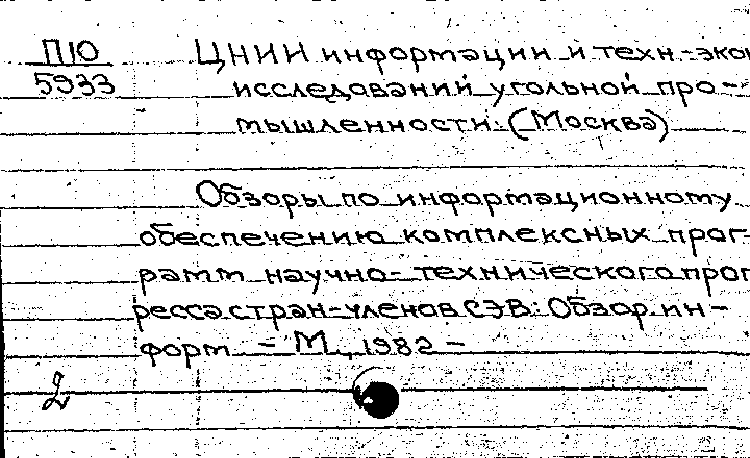 П10
5933
ЦНИИ информации и техн.-экон
исследований угольной про-
мышленности. (Москва)
Обзоры по информационному
обеспечению комплексных прог-
рамм научно-технического прог
ресса стран-членов СЭВ: Обзор. ин-
форм. - М., 1982 -
2